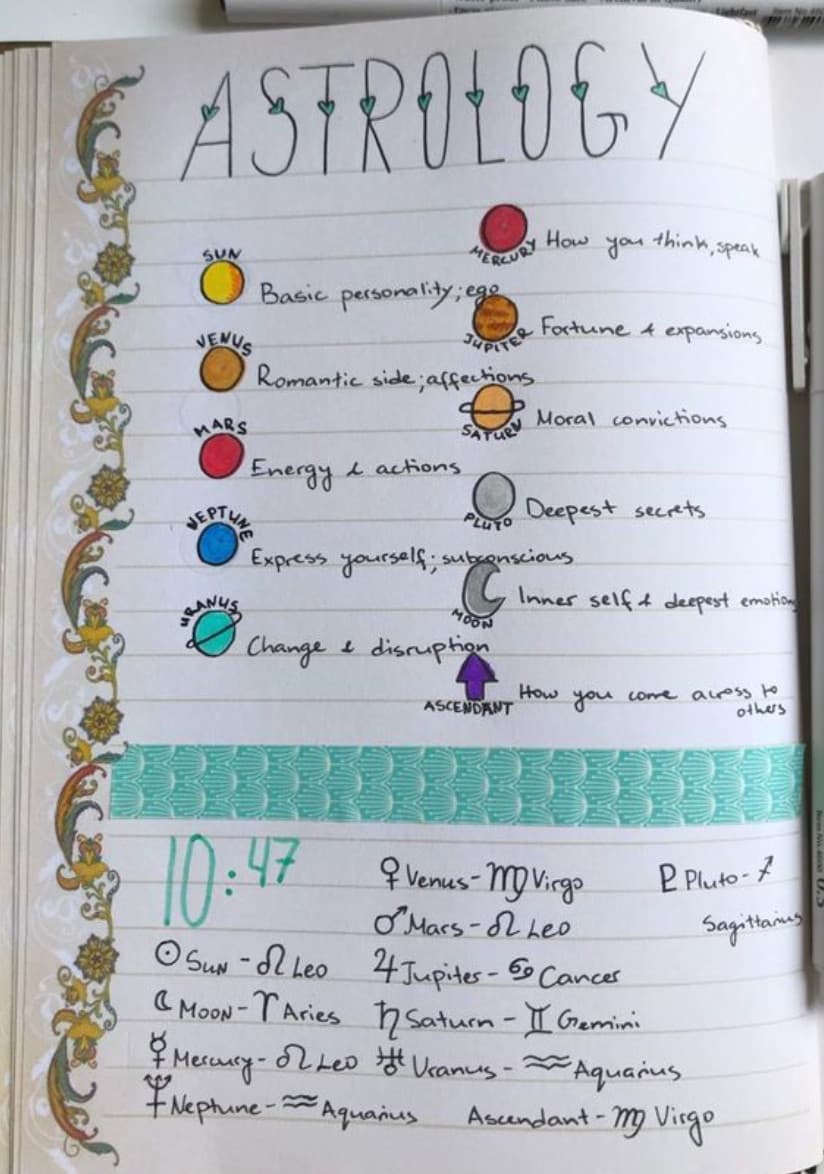 ASTROLOGY
SUN
Basic personality; ego
MERCURY
How you think, speak
VENUS
Romantic side; affections
JUPITER
Fortune & expansions
MARS
Energy & actions
SATURN
Moral convictions
NEPTUNE
Express yourself; subconscious
PLUTO
Deepest secrets
URANUS
Change & disruption
MOON
Inner self & deepest emotions
ASCENDANT
How you come across to
others
10:47
☉ Sun - ♌ Leo
☾ Moon - ♈ Aries
☿ Mercury - ♌ Leo
♆ Neptune - ♒ Aquarius
♀ Venus - ♍ Virgo
♂ Mars - ♌ Leo
♃ Jupiter - ♋ Cancer
♄ Saturn - ♊ Gemini
♅ Uranus - ♒ Aquarius
Ascendant - ♍ Virgo
♇ Pluto - ♐
Sagittarius